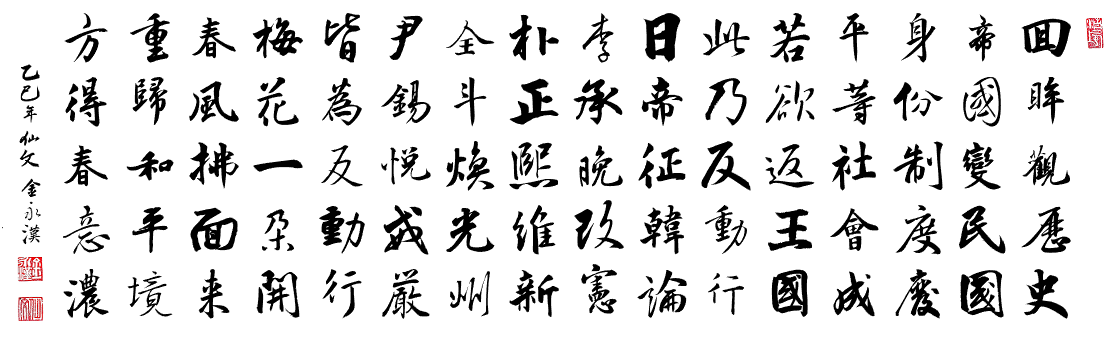 回眸觀歷史
帝國變民國
身份制度廢
平等社會成
若欲返王國
此乃反動行
日帝征韓論
李承晚改憲
朴正熙維新
全斗煥光州
尹錫悅戒厳
皆為反動行
梅花一朶開
春風拂面来
重歸和平境
方得春意濃
乙巳年仙文金永漢